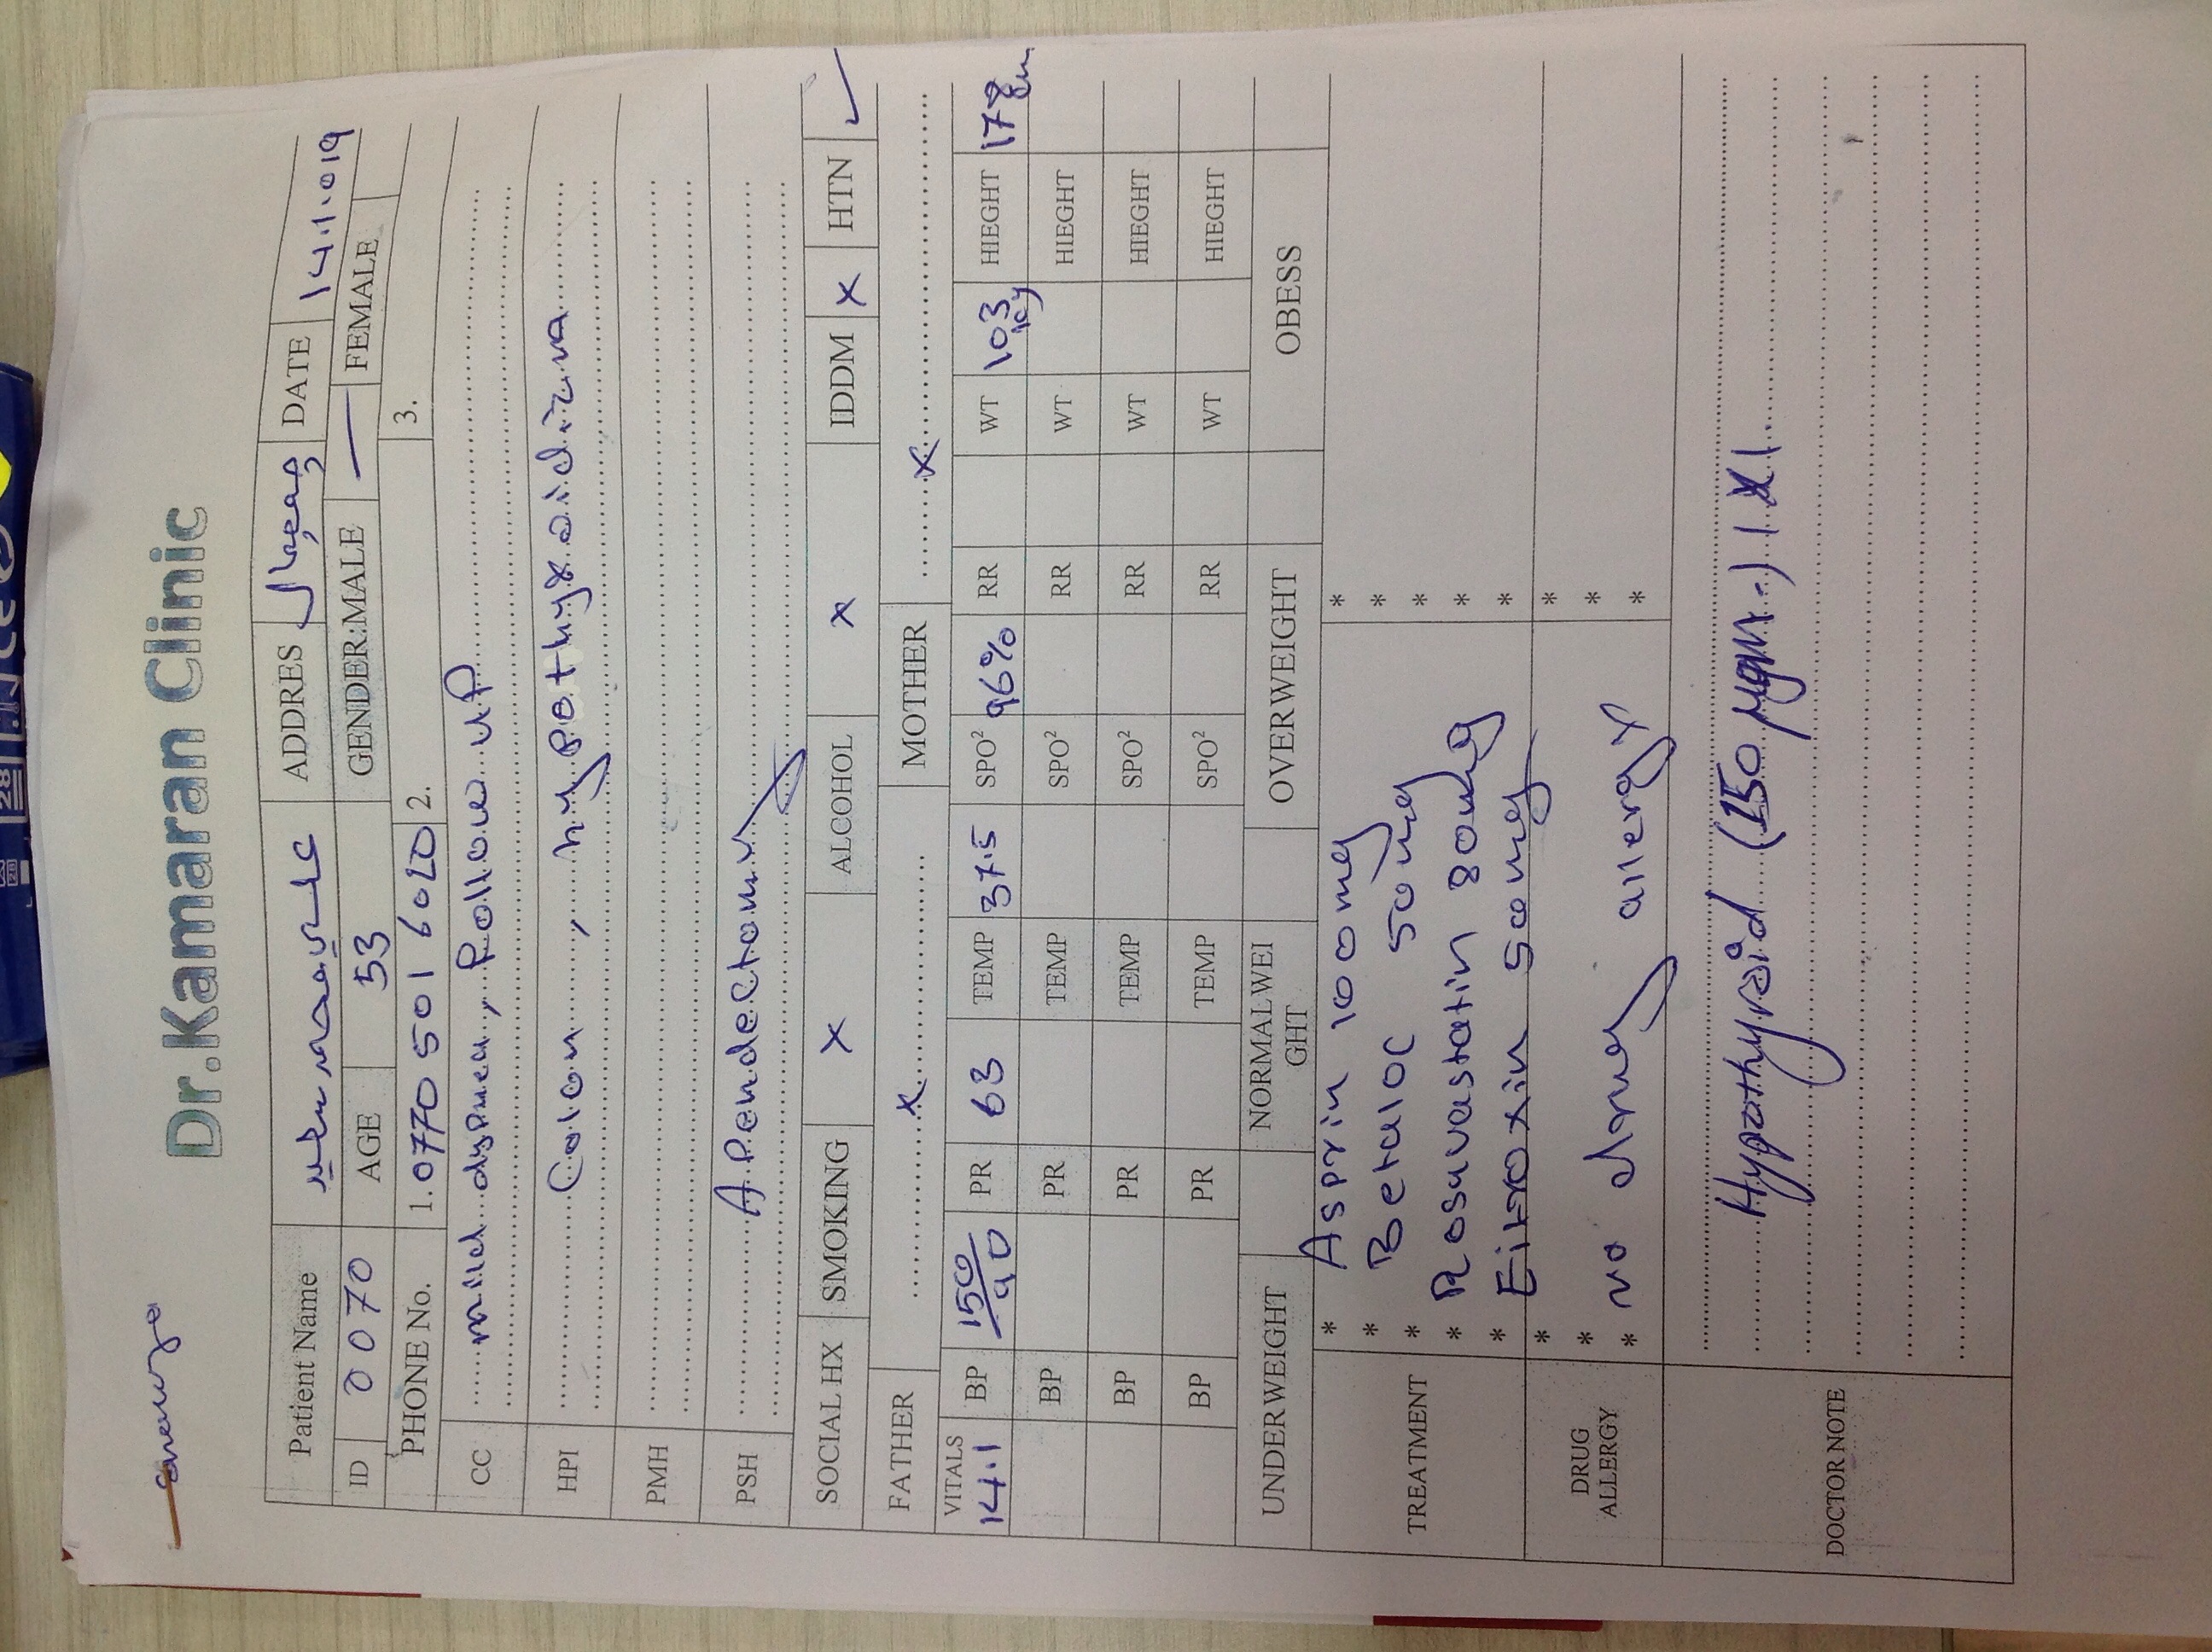 Dr.Kamaran Clinic
Patient Name ADDRES DATE 14.1.019
ID 0070 AGE 53 GENDER:MALE — FEMALE
PHONE No. 1.0770 501 6020 2. 3.
CC mild dyspnea, follow up
HPI Colon, hypothyroidizma
PMH
PSH Apendectomy
SOCIAL HX SMOKING x ALCOHOL x IDDM x HTN ✓
FATHER x MOTHER x
VITALS
14.1 BP 150/90 PR 63 TEMP 37.5 SPO² 96% RR WT 103 kg HIEGHT 178cm
BP PR TEMP SPO² RR WT HIEGHT
BP PR TEMP SPO² RR WT HIEGHT
BP PR TEMP SPO² RR WT HIEGHT
UNDERWEIGHT NORMALWEIGHT OVERWEIGHT OBESS
TREATMENT
* Asprin 100mg *
* Betaloc 50mg *
* Rosuvastatin 80mg *
* Eiltroxin 50mg *
*
DRUG ALLERGY
* *
* *
* no drug allergy *
DOCTOR NOTE
Hypothyroid (150 µgm.) 1x1